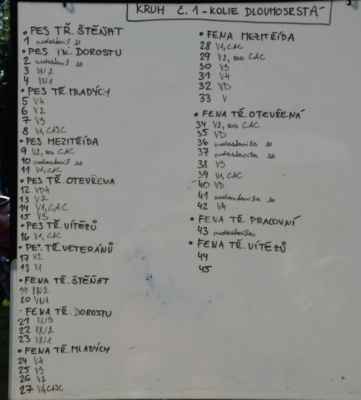 KRUH Č. 1 - KOLIE DLOUHOSRSTÁ
• PES TŘ. ŠTĚŇAT
1 nedostavil se
• PES TŘ. DOROSTU
2 nedostavil se
3 VN2
4 VN1
• PES TŘ. MLADÝCH
5 V4
6 V2
7 V3
8 V1, CAC
• PES MEZITŘÍDA
9 V2, res CAC
10 nedostavil se
11 V1, CAC
• PES TŘ. OTEVŘENÁ
12 VD4
13 V2
14 V1, CAC
15 V3
• PES TŘ. VÍTĚZŮ
16 V1, CAC
• PES TŘ. VETERÁNŮ
17 V2
18 V1
• FENA TŘ. ŠTĚŇAT
19
20 VN1
• FENA TŘ. DOROSTU
21 VN3
22 VN2
23 VN1
• FENA TŘ. MLADÝCH
24 V4
25 V3
26 V2
27 V1, CAC
• FENA MEZITŘÍDA
28 V1, CAC
29 V2, res CAC
30 V3
31 V4
32 VD
33 V
• FENA TŘ. OTEVŘENÁ
34 V2, res CAC
35 VD
36 nedostavila se
37 nedostavila se
38 V3
39 V1, CAC
40 VD
41 nedostavila se
42 V4
• FENA TŘ. PRACOVNÍ
43 nedostavila
• FENA TŘ. VÍTĚZŮ
44
45